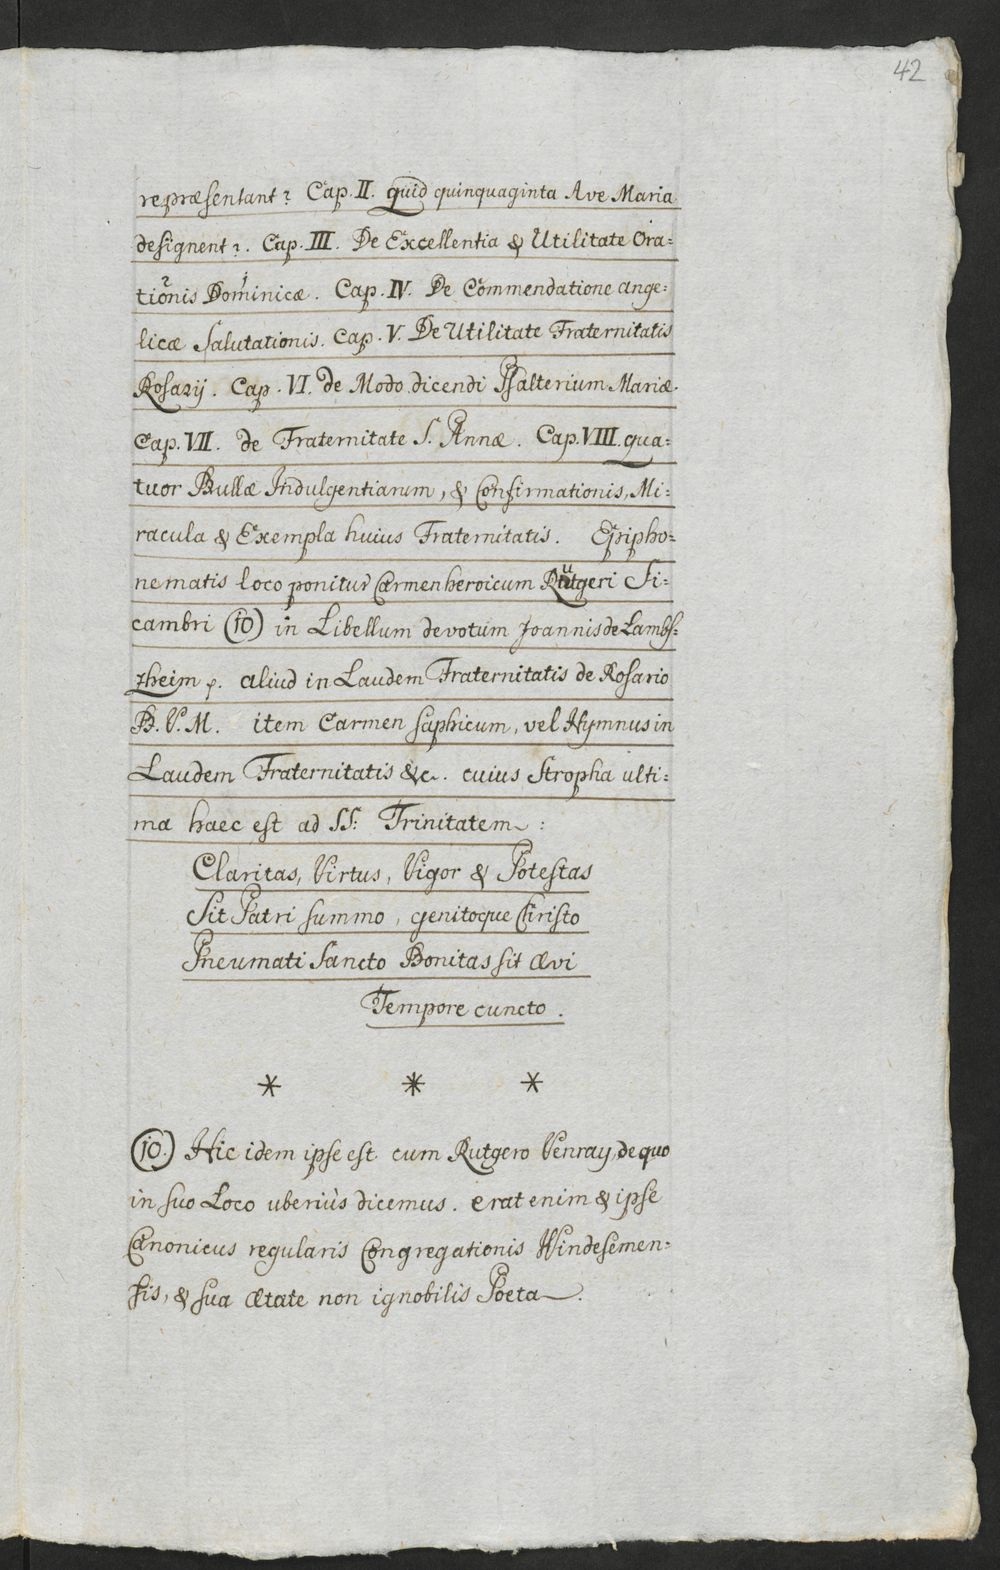 42
repræsentant? Cap. II. quid quinquaginta Ave Maria
designent?. Cap. III. De Excellentia & Utilitate Ora=
tionis Dominicæ. Cap. IV. De Commendatione ange=
licæ Salutationis. Cap. V. De Utilitate Fraternitatis
Rosarij. Cap. VI. de Modo dicendi Psalterium Mariæ.
Cap. VII. de Fraternitate S. Annæ. Cap. VIII. qua=
tuor Bullæ Indulgentiarum, & Confirmationis, Mi=
racula & Exempla huius Fraternitatis. Epipho=
nematis loco ponitur Carmen heroicum Rutgeri Si=
cambri (10) in Libellum devotum Joannis de Lambs=
zheim p. aliud in Laudem Fraternitatis de Rosario
B. V. M. item Carmen saphicum, vel Hymnus in
Laudem Fraternitatis &c. cuius Stropha ulti=
ma haec est ad SS: Trinitatem:
Claritas, Virtus, Vigor & Potestas
Sit Patri summo, genitoque Christo
Pneumati Sancto Bonitas sit ævi
Tempore cuncto.
* * *
(10.) Hic idem ipse est cum Rutgero Venray, de quo
in suo Loco uberiùs dicemus. erat enim & ipse
Canonicus regularis Congregationis Windesemen=
sis, & sua ætate non ignobilis Poeta.